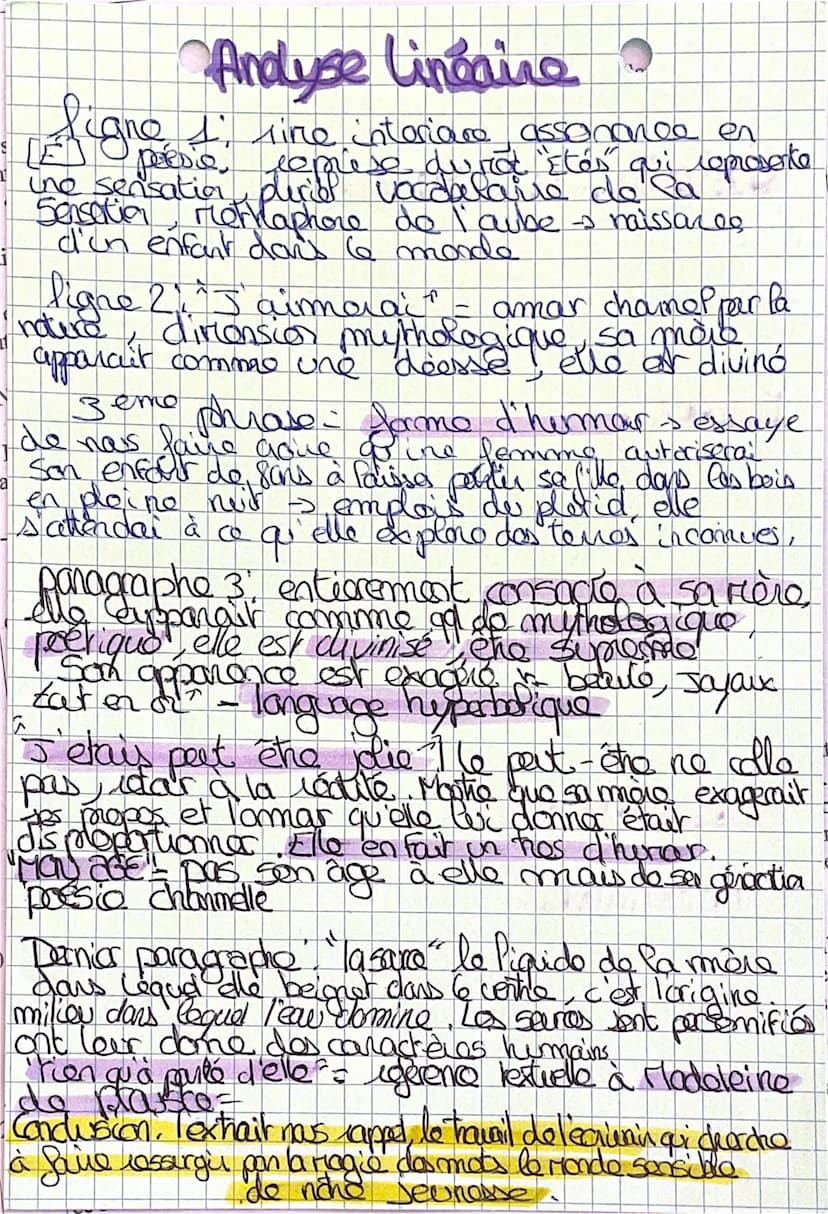 Analyse linéaire
Ligne 1: rime intériaee assonance en
[E] poésie, reprise du mot "Etés" qui représente
une sensation, pluriel vocabulaire de la
sensation, métaphore de l'aube → naissances
d'un enfant dans le monde
ligne 2: "J'aimerai" = amour charnel par la
nature, dimension mythologique, sa mère
apparait comme une déesse, elle est diviné
3 eme phrase = forme d'humour → essaye
de nous faire croire qu'une femme autoriserai
son enfant de 8ans à laissa partir sa fille dans les bois
en pleine nuit → emplois du plaid, elle
s'attendai à ce qu'elle explore des terres inconnues,
paragraphe 3: entierement consacré à sa mère,
elle apparait comme qq de mythologique,
poétique, elle est divinisé, être suprême
Son apparance est exagéré = beauté, Joyaux
tout en or" - language hyperbolique
"J'étais peut être jolie" le peut-être ne colle
pas, retour à la réalité. Montre que sa mère exagerait
ses propos et l'amour qu'elle lui donner était
disproportionner. Elle en fait un tros d'humour.
"Mon âge" = pas son âge à elle mais de sa génération
poésie charnnelle
Dernier paragraphe: "la source" le liquide de la mère
dans lequel elle beignet dans le ventre, c'est l'origine.
milieu dans lequel l'eau domine. Les sources sont personnifiés
ont leur donne des caractères humains
"rien qu'à parlé d'elle" = référence textuelle à Madeleine
de Prouste =
Conclusion. l'extrait nous rappel, le travail de l'écrivain qui cherche
à faire ressurgir par la magie des mots le monde sensible
de notre jeunesse.